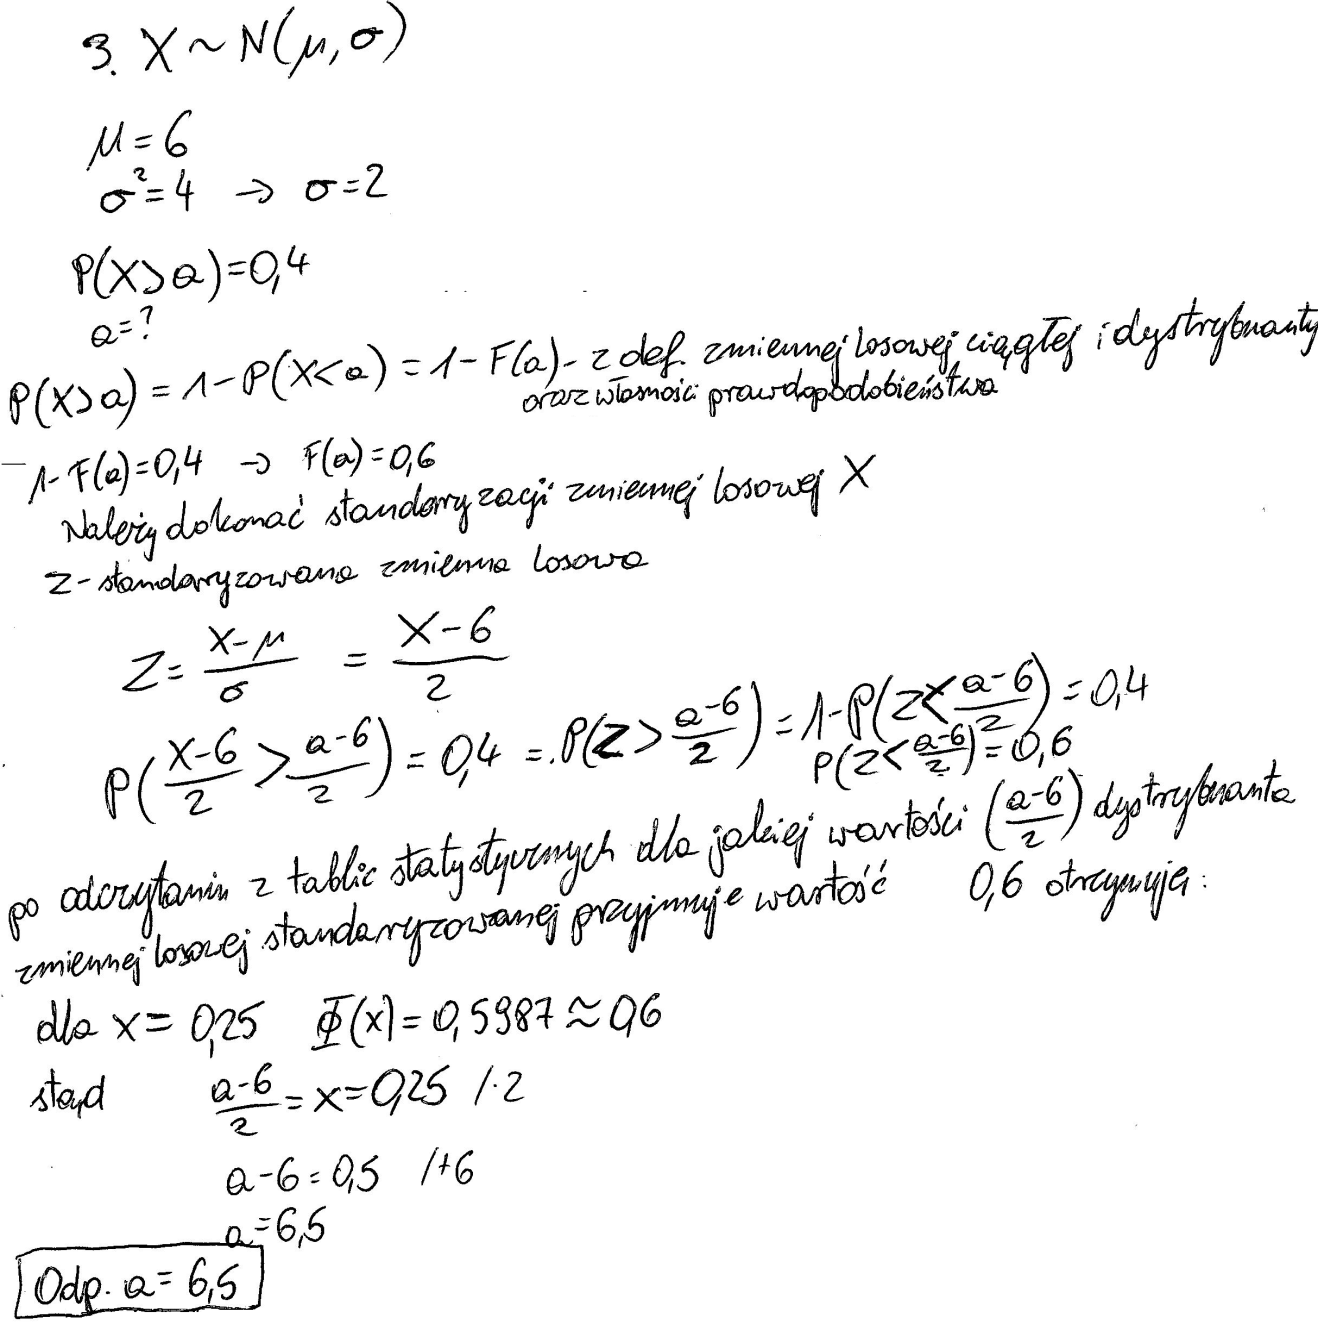 3. X ~ N(μ, σ)
μ = 6
σ² = 4 → σ = 2
P(X > a) = 0,4
a = ?
P(X > a) = 1 - P(X < a) = 1 - F(a) - z def. zmiennej losowej ciągłej i dystrybuanty
oraz własności prawdopodobieństwa
1 - F(a) = 0,4 → F(a) = 0,6
Należy dokonać standaryzacji zmiennej losowej X
Z - standaryzowana zmienna losowa
Z = (X - μ)/σ = (X - 6)/2
P((X - 6)/2 > (a - 6)/2) = 0,4 = P(Z > (a - 6)/2) = 1 - P(Z < (a - 6)/2) = 0,4
P(Z < (a - 6)/2) = 0,6
po odczytaniu z tablic statystycznych dla jakiej wartości ((a - 6)/2) dystrybuanta
zmiennej losowej standaryzowanej przyjmuje wartość 0,6 otrzymuję:
dla x = 0,25 Φ(x) = 0,5987 ≈ 0,6
stąd (a - 6)/2 = x = 0,25 /·2
a - 6 = 0,5 /+6
a = 6,5
Odp. a = 6,5